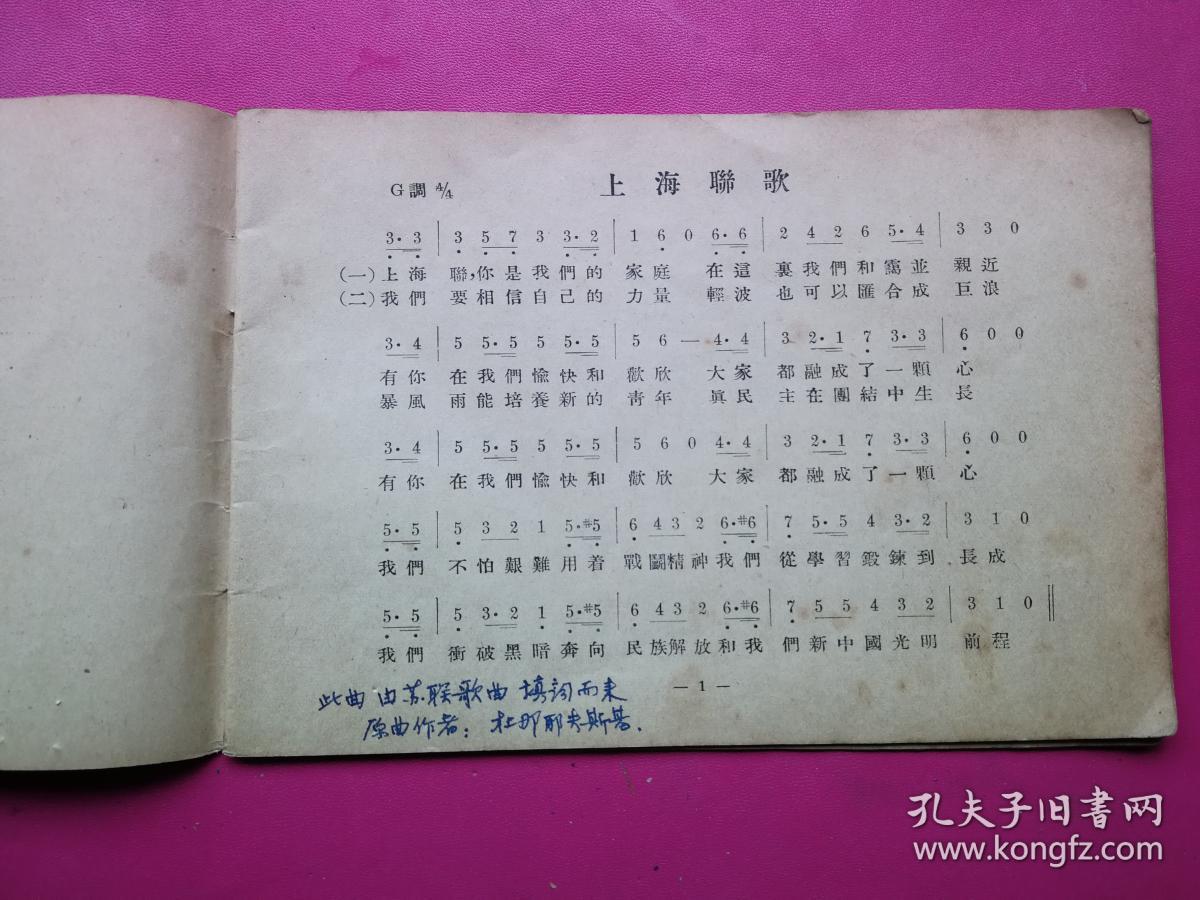 上海聯歌
G調 4/4
3· 3 | 3 5 7 3 3· 2 | 1 6 0 6· 6 | 2 4 2 6 5· 4 | 3 3 0
(一)上海 聯,你是我們的 家庭 在這 裏我們和靄並 親近
(二)我們 要相信自己的 力量 輕波 也可以匯合成 巨浪
3· 4 | 5 5· 5 5 5· 5 | 5 6 — 4· 4 | 3 2· 1 7 3· 3 | 6 0 0
有你 在我們愉快和 歡欣 大家 都融成了一顆 心
暴風 雨能培養新的 青年 眞民 主在團結中生 長
3· 4 | 5 5· 5 5 5· 5 | 5 6 0 4· 4 | 3 2· 1 7 3· 3 | 6 0 0
有你 在我們愉快和 歡欣 大家 都融成了一顆 心
5· 5 | 5 3 2 1 5· #5 | 6 4 3 2 6· #6 | 7 5· 5 4 3· 2 | 3 1 0
我們 不怕艱難用着 戰鬭精神我們 從學習鍛鍊到 長成
5· 5 | 5 3· 2 1 5· #5 | 6 4 3 2 6· #6 | 7 5 5 4 3 2 | 3 1 0 ‖
我們 衝破黑暗奔向 民族解放和我 們新中國光明 前程
— 1 —
此曲由苏联歌曲填词而来
原曲作者：杜那耶夫斯基.
孔夫子旧书网
www.kongfz.com